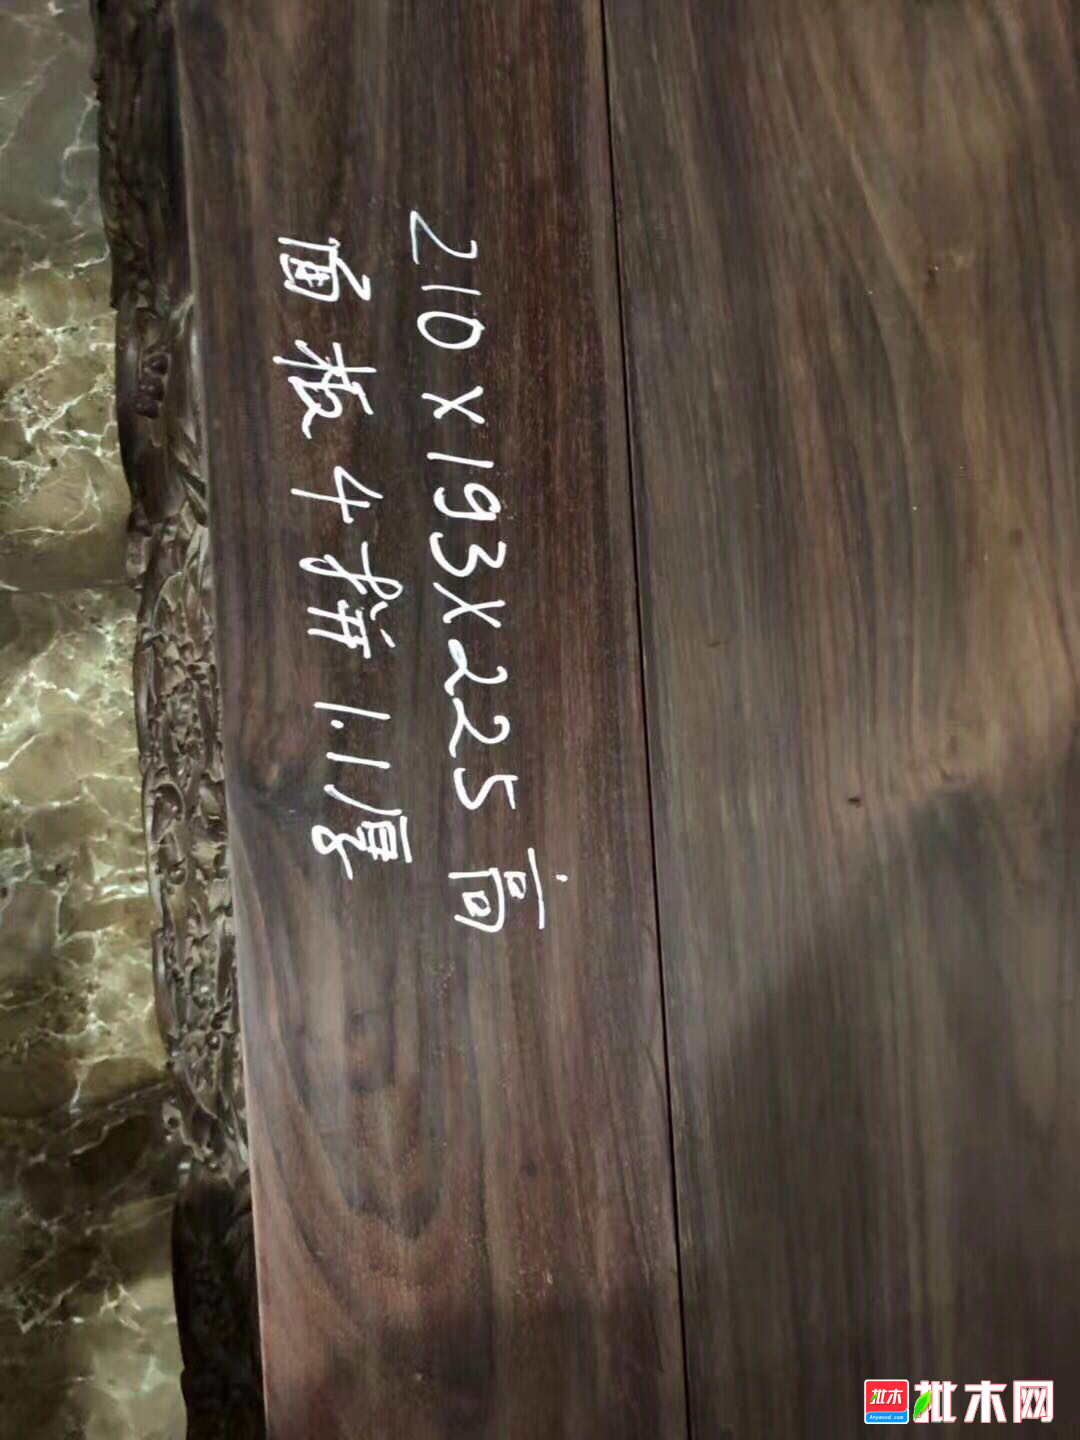 210X193X225高
面板4拼1.1厚
批木
Anywood.com
批木网